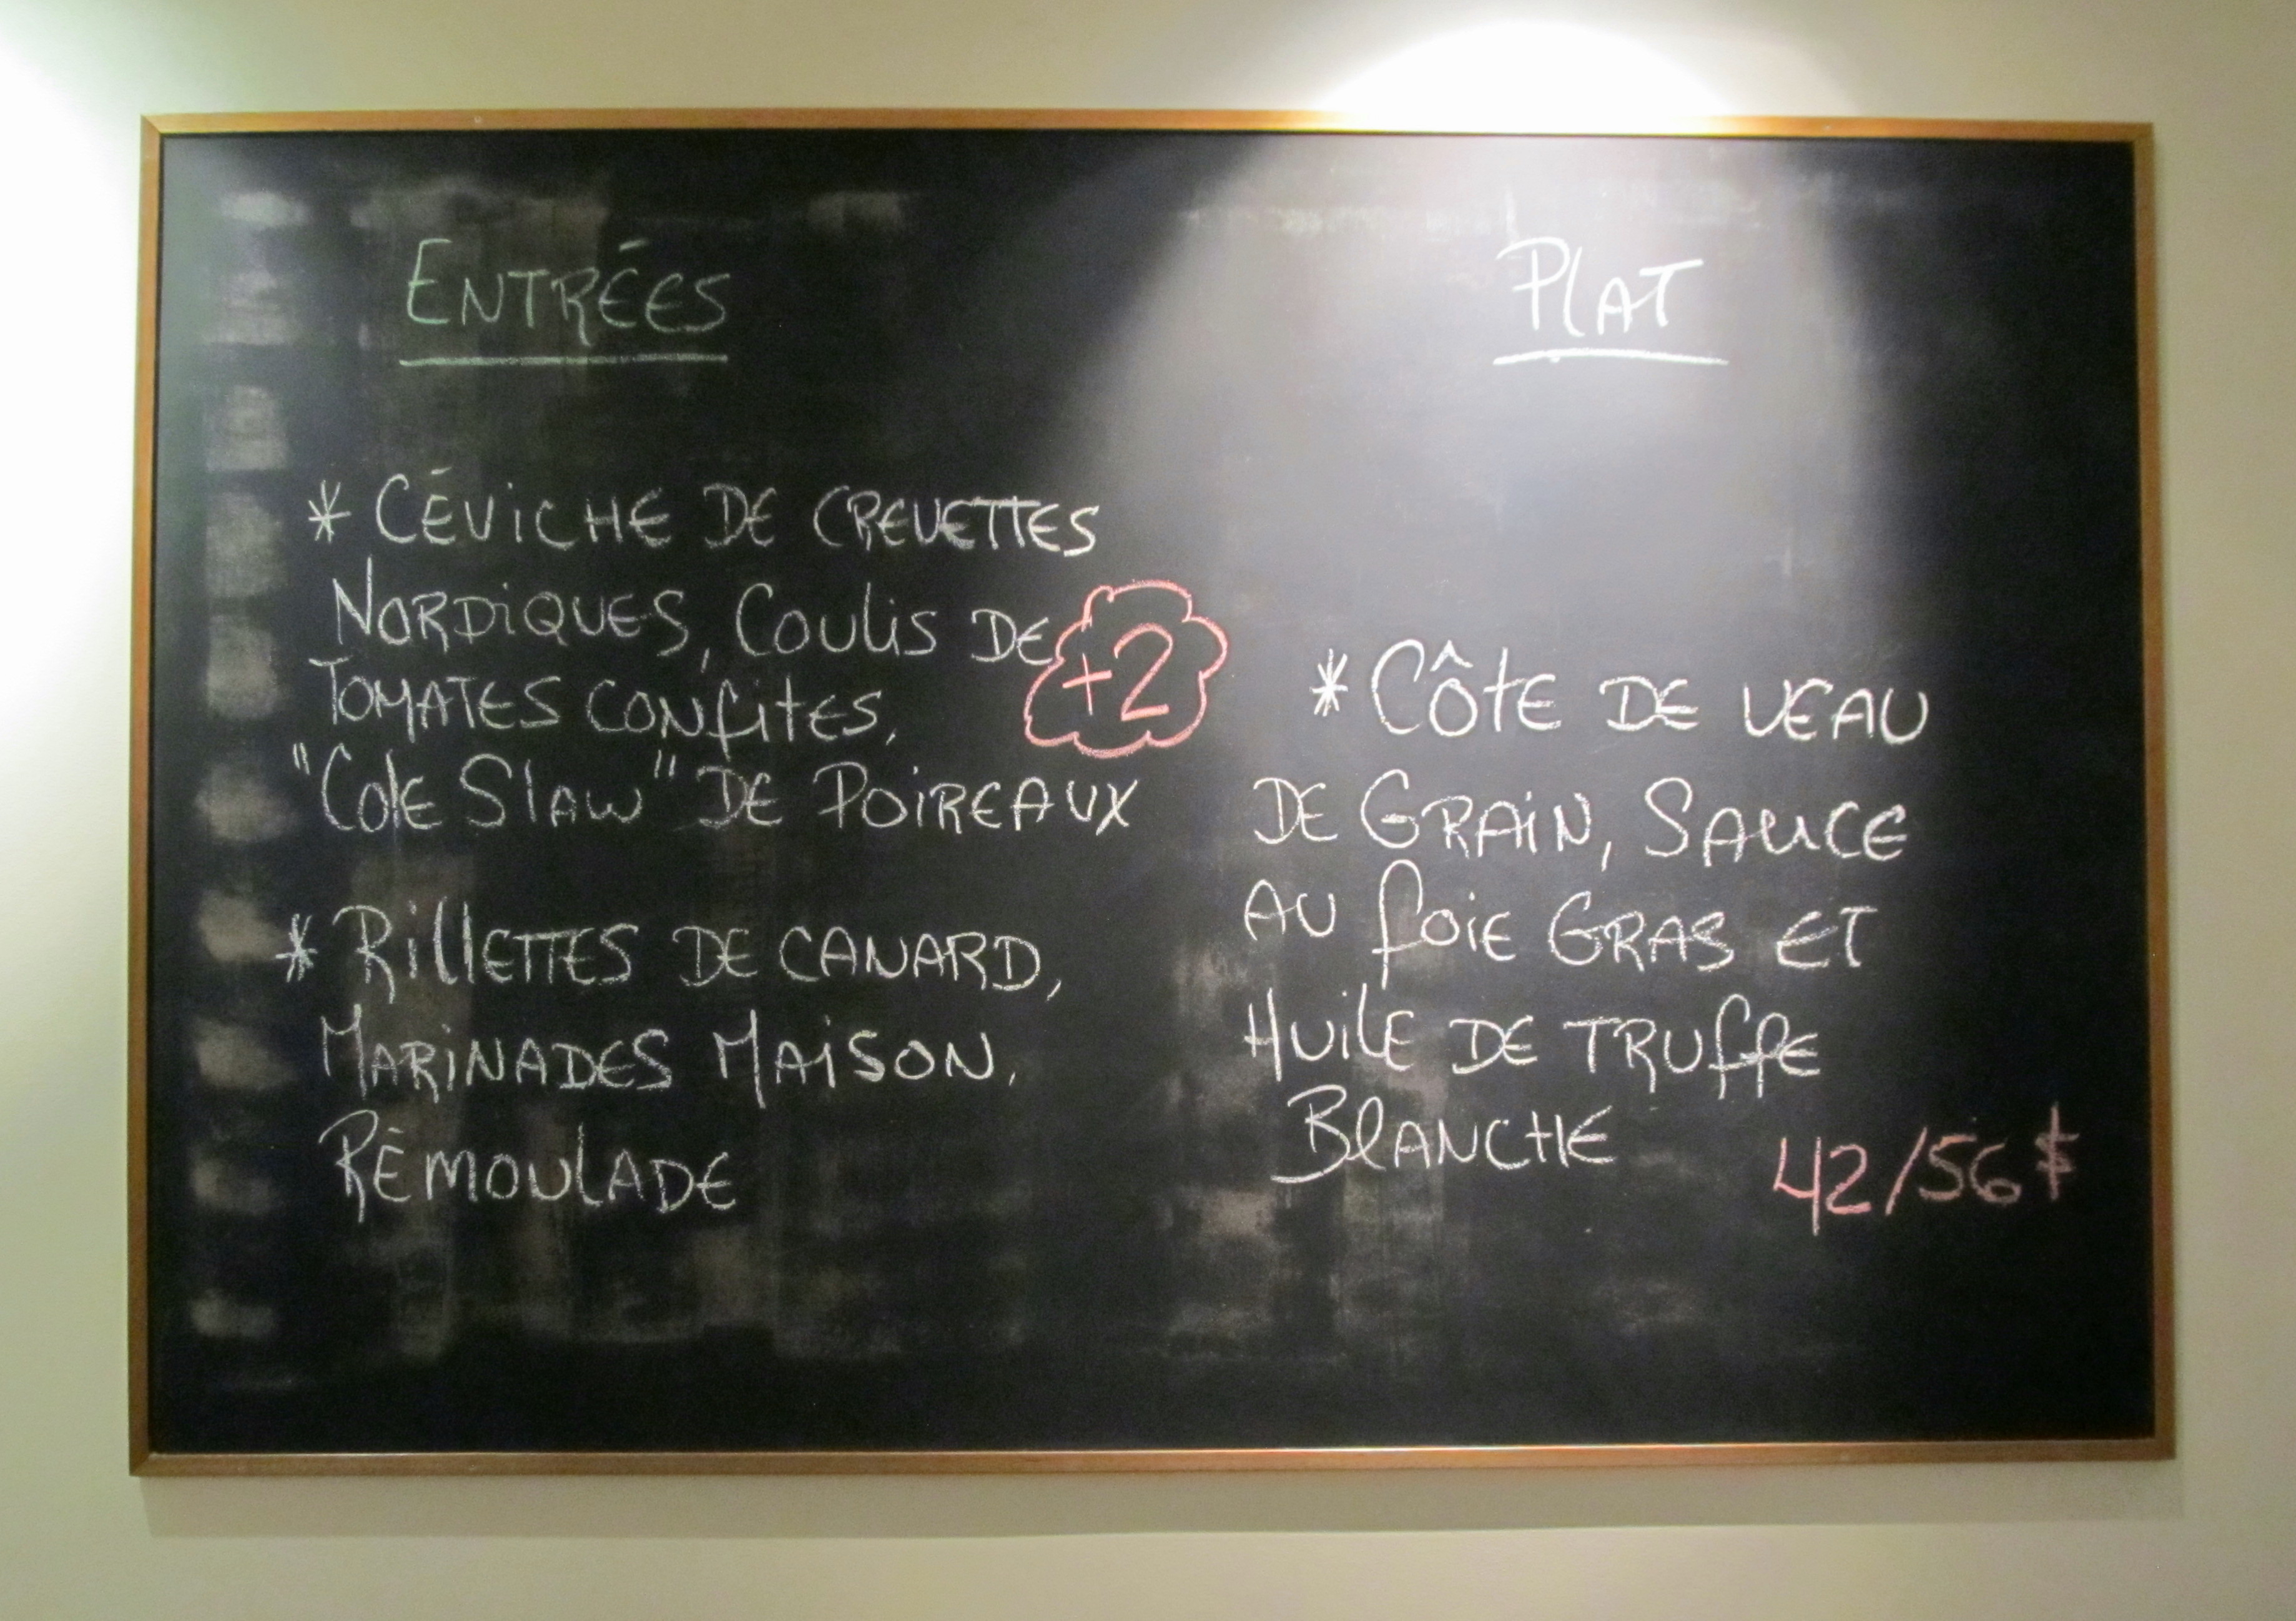 ENTRÉES
* CÉVICHE DE CREVETTES
NORDIQUES, COULIS DE
TOMATES CONFITES,
"COLE SLAW" DE POIREAUX
+2
* RILLETTES DE CANARD,
MARINADES MAISON,
RÉMOULADE
PLAT
* CÔTE DE VEAU
DE GRAIN, SAUCE
AU FOIE GRAS ET
HUILE DE TRUFFE
BLANCHE
42/56$